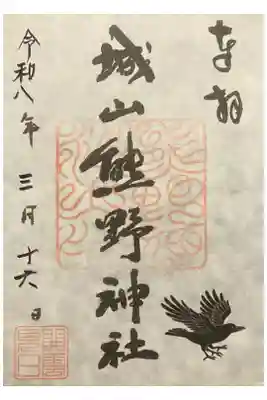 奉拝
城山熊野神社
令和八年三月十六日